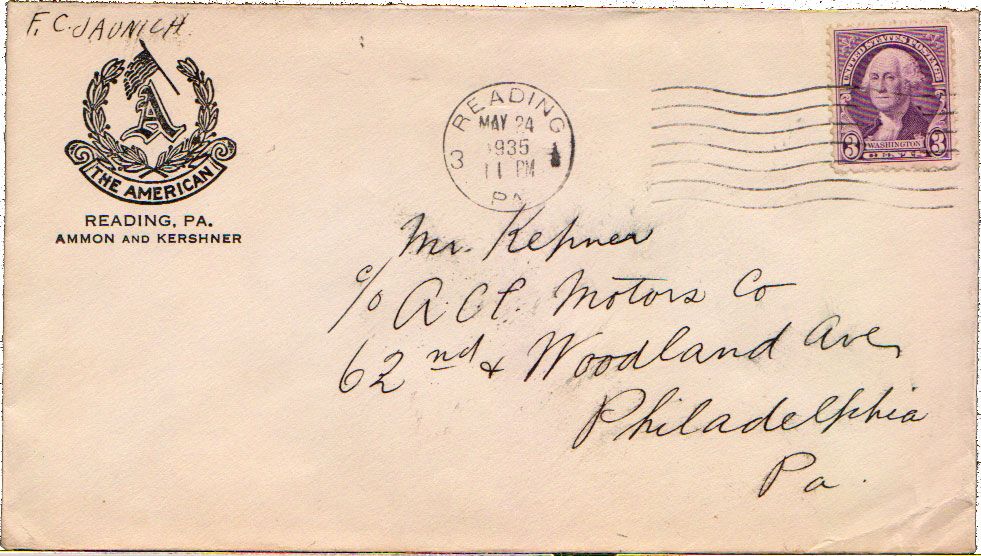 F. C. JAUNICH
A
THE AMERICAN
READING, PA.
AMMON AND KERSHNER
READING
MAY 24
1935
11 PM
3
PA
UNITED STATES POSTAGE
3 WASHINGTON 3
Mr. Kepner
c/o A.C.F. Motors Co
62nd & Woodland Ave,
Philadelphia
Pa.